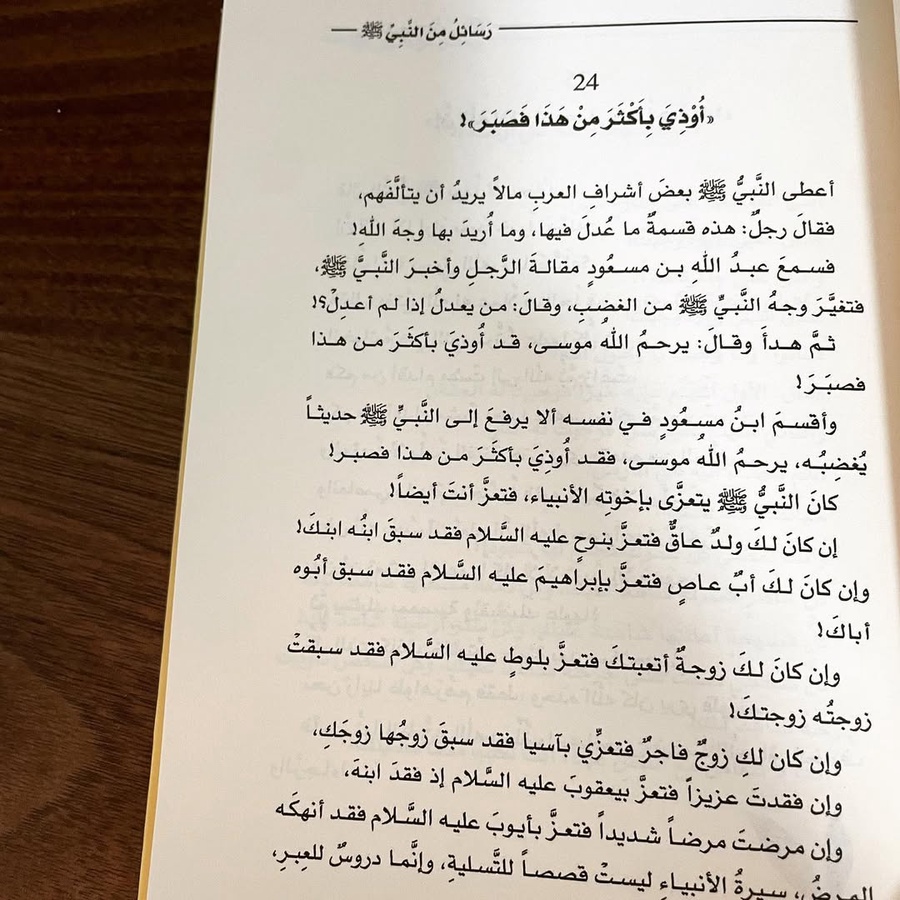 رَسَائِلُ مِنَ النَّبِيِّ ﷺ
24
«أُوْذِيَ بِأَكْثَرَ مِنْ هَذَا فَصَبَرَ»!
أعطى النَّبيُّ ﷺ بعضَ أشرافِ العربِ مالاً يريدُ أن يتألَّفَهم،
فقالَ رجلٌ: هذه قسمةٌ ما عُدلَ فيها، وما أُريدَ بها وجهَ اللهِ!
فسمعَ عبدُ اللهِ بن مسعُودٍ مقالةَ الرَّجلِ وأخبرَ النَّبيَّ ﷺ،
فتغيَّرَ وجهُ النَّبيِّ ﷺ من الغضبِ، وقالَ: من يعدلُ إذا لم أعدِلْ؟!
ثمَّ هدأَ وقالَ: يرحمُ اللهُ موسى، قد أُوذيَ بأكثَرَ من هذا
فصبَرَ!
وأقسمَ ابنُ مسعُودٍ في نفسه ألا يرفعَ إلى النَّبيِّ ﷺ حديثاً
يُغضِبُه، يرحمُ اللهُ موسى، فقد أُوذِيَ بأكثَرَ من هذا فصبر!
كانَ النَّبيُّ ﷺ يتعزَّى بإخوتِه الأنبياء، فتعزَّ أنتَ أيضاً!
إن كانَ لكَ ولدٌ عاقٌّ فتعزَّ بنوحٍ عليه السَّلام فقد سبقَ ابنُه ابنكَ!
وإن كانَ لكَ أبٌ عاصٍ فتعزَّ بإبراهيمَ عليه السَّلام فقد سبق أبُوه
أباكَ!
وإن كانَ لكَ زوجةٌ أتعبتكَ فتعزَّ بلوطٍ عليه السَّلام فقد سبقتْ
زوجتُه زوجتكَ!
وإن كان لكِ زوجٌ فاجرٌ فتعزِّي بآسيا فقد سبقَ زوجُها زوجَكِ،
وإن فقدتَ عزيزاً فتعزَّ بيعقوبَ عليه السَّلام إذ فقدَ ابنهَ،
وإن مرضتَ مرضاً شديداً فتعزَّ بأيوبَ عليه السَّلام فقد أنهكَه
المرضُ، سيرةُ الأنبياءِ ليستْ قصصاً للتَّسليةِ، وإنَّما دروسٌ للعِبرِ،